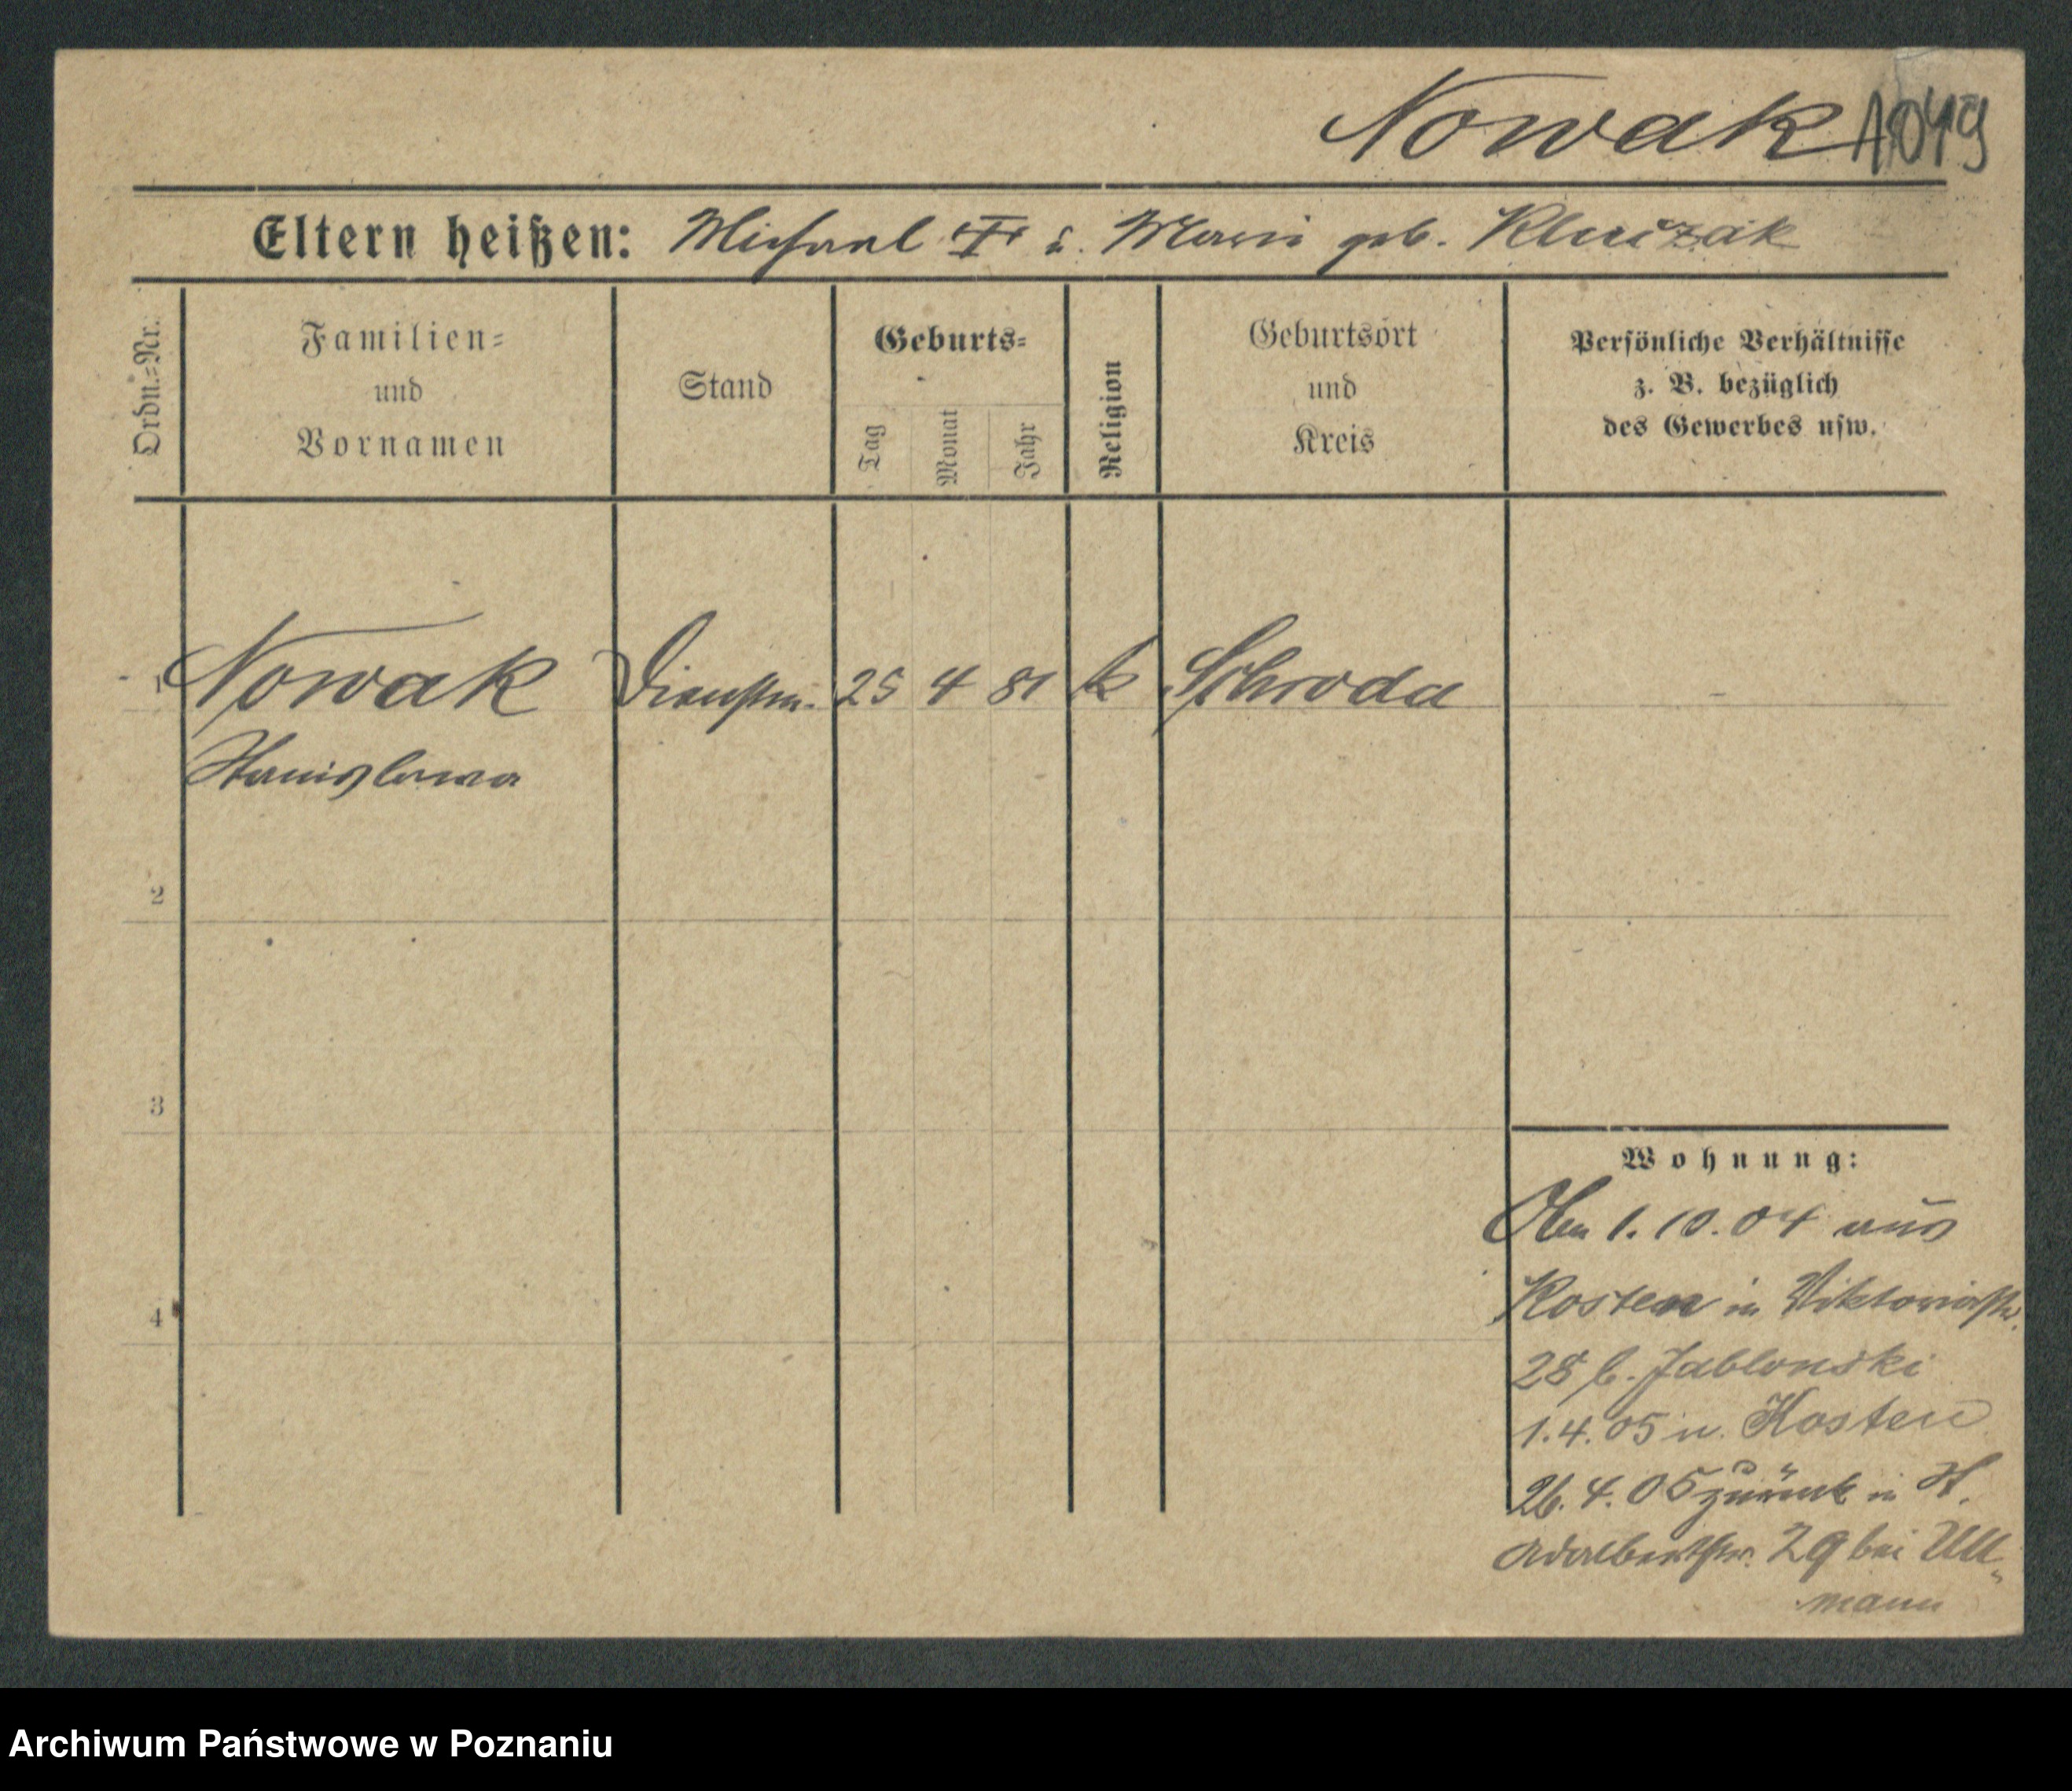 Nowak 1049
Eltern heißen: Michael † u. Marie geb. Kluczak
Ordn.=Nr.
Familien=
und
Vornamen
Stand
Geburts=
Tag
Monat
Jahr
Religion
Geburtsort
und
Kreis
Persönliche Verhältnisse
z. B. bezüglich
des Gewerbes usw.
1 Nowak Dienstm. 25 4 81 k Schroda
Stanislawa
2
3
4
Wohnung:
1.10.04 aus
Kosten in Viktoriastr.
28 b. Jablonski
1.4.05 n. Kosten
26.4.05 zurück in St.
Adalbertstr. 29 bei Ull-
mann
Archiwum Państwowe w Poznaniu